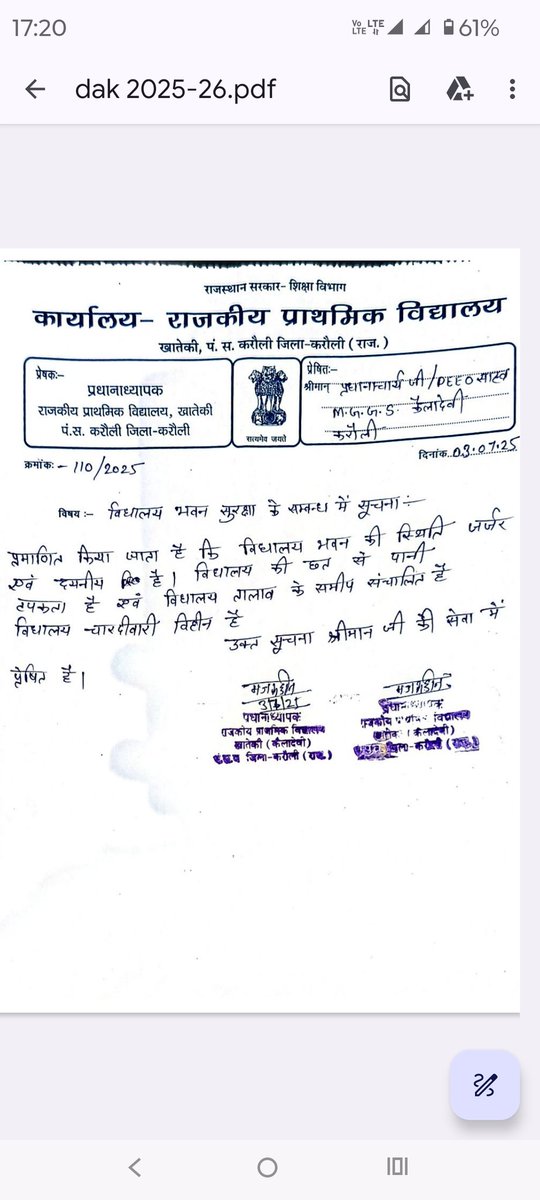 17:20
Vo LTE LTE 61%
dak 2025-26.pdf
राजस्थान सरकार- शिक्षा विभाग
कार्यालय– राजकीय प्राथमिक विद्यालय
खातेकी, पं. स. करौली जिला-करौली ( राज. )
प्रेषकः–
प्रधानाध्यापक
राजकीय प्राथमिक विद्यालय, खातेकी
पं.स. करौली जिला-करौली
सत्यमेव जयते
प्रेषितः–
श्रीमान प्रधानाचार्य जी/PEEO साहब
M.G.G.S. कैलादेवी
करौली
क्रमांकः- 110/2025
दिनांक..03.07.25
विषय :– विद्यालय भवन सुरक्षा के सम्बन्ध में सूचना :-
प्रमाणित किया जाता है कि विद्यालय भवन की स्थिति जर्जर
एवं दयनीय है। विद्यालय की छत से पानी
टपकता है एवं विद्यालय तालाब के समीप संचालित है
विद्यालय चारदीवारी विहीन है
उक्त सूचना श्रीमान जी की सेवा में
प्रेषित है।
3/7/25
प्रधानाध्यापक
राजकीय प्राथमिक विद्यालय
खातेकी (कैलादेवी)
जिला-करौली (राज.)
प्रधानाध्यापक
राजकीय प्राथमिक विद्यालय
(कैलादेवी)
जिला-करौली (राज.)